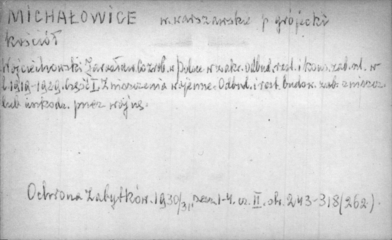 MICHAŁOWICE w. warszawska p. grójecki
kościół
Wojciechowski Jarosław Co zrob. w Polsce w zakr. odbud. rest. i kons. zab. rt. w
l. 1919-1929. Część I. Zniszczenia wojenne. Odbud. i rest. budow. zab. zniszcz.
lub uszkodz. przez wojnę.
Ochrona Zabytków. 1930/31, zesz. 1-4. cz. II. str. 243-318 (262).